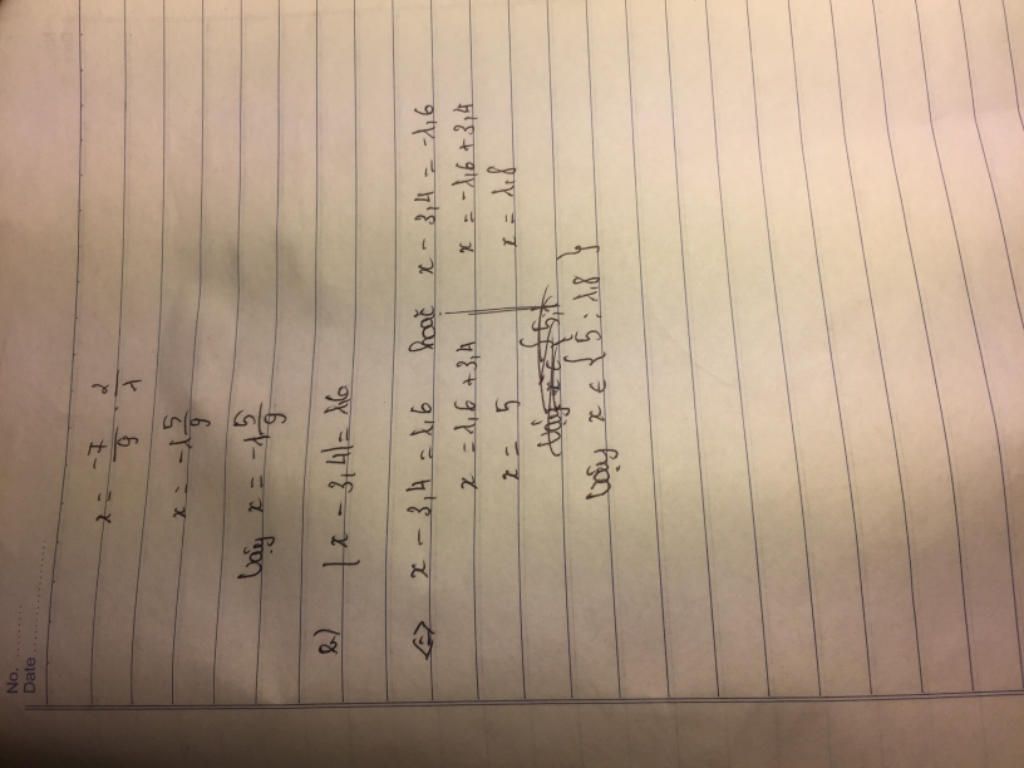 No. ............
Date ....................
x = -7/9 . 2/1
x = -1 5/9
Vậy x = -1 5/9
2) |x - 3,4| = 1,6
<=> x - 3,4 = 1,6 hoặc x - 3,4 = -1,6
x = 1,6 + 3,4 x = -1,6 + 3,4
x = 5 x = 1,8
Vậy x ∈ { 5 ; 1,8 }